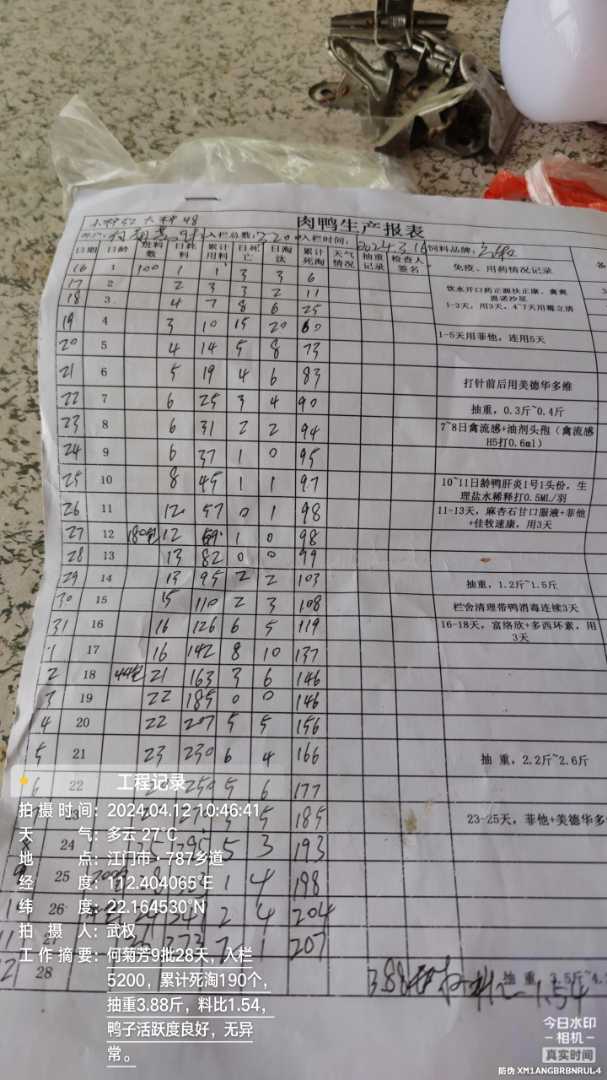 肉鸭生产报表
小料52 大料48
入栏总数: 5200 入栏时间: 2024.3.16 饲料品牌:
日期 日龄 进料数 日耗料 累计用料 日死亡 日淘汰 累计死淘 天气情况 抽重记录 检查人签名 免疫、用药情况记录
16 1 100 1 1 3 3 6
17 2 2 3 3 2 11 饮水开口药正额扶正康，禽爽
18 3 4 7 8 6 25 1-3天，用3天，4~7天用霉立清
19 4 3 10 15 20 60
20 5 4 14 5 8 73 1-5天用菲他，连用5天
21 6 5 19 4 6 83 打针前后用美德华多维
22 7 6 25 3 4 90 抽重，0.3斤~0.4斤
23 8 6 31 2 2 94 7~8日禽流感+油剂头孢（禽流感H5打0.6ml）
24 9 6 37 1 0 95
25 10 8 45 1 1 97 10~11日龄鸭肝炎1号1头份，生理盐水稀释打0.5ML/羽
26 11 12 57 0 1 98 11-13天，麻杏石甘口服液+菲他+佳牧速康，用3天
27 12 180 12 69 1 0 98
28 13 13 82 0 0 99
29 14 13 95 2 2 103 抽重，1.2斤~1.5斤
30 15 15 110 2 3 108 栏舍清理带鸭消毒连续3天
31 16 16 126 6 5 119 16-18天，富络放+多西环素，用3天
1 17 16 142 8 10 137
2 18 44 21 163 3 6 146
3 19 22 185 0 0 146
4 20 22 207 5 5 156
5 21 23 230 6 4 166 抽 重，2.2斤~2.6斤
6 22 250 5 6 177
23 5 185 23-25天，菲他+美德华多
24 295 5 3 193
25 1 4 198
26 2 4 204
11 1 207
12 28 3.88 料比1.54 抽 重
工程记录
拍摄时间：2024.04.12 10:46:41
天　　气：多云 27°C
地　　点：江门市·787乡道
经　　度：112.404065°E
纬　　度：22.164530°N
拍 摄 人：武权
工作摘要：何菊芳9批28天，入栏
5200，累计死淘190个，
抽重3.88斤，料比1.54，
鸭子活跃度良好，无异
常。
今日水印
-相机-
真实时间
防伪 XM1ANGBRBNRUL4